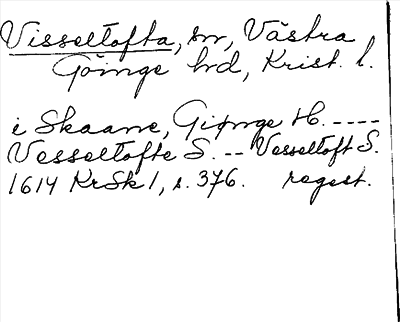 Visseltofta, sn, Västra
Göinge hd, Krist. l.
i Skaane, Giønge H. ----
Vesseltofte S. -- Vesseltoft S.
1614 KrSk 1, s. 376. regest.